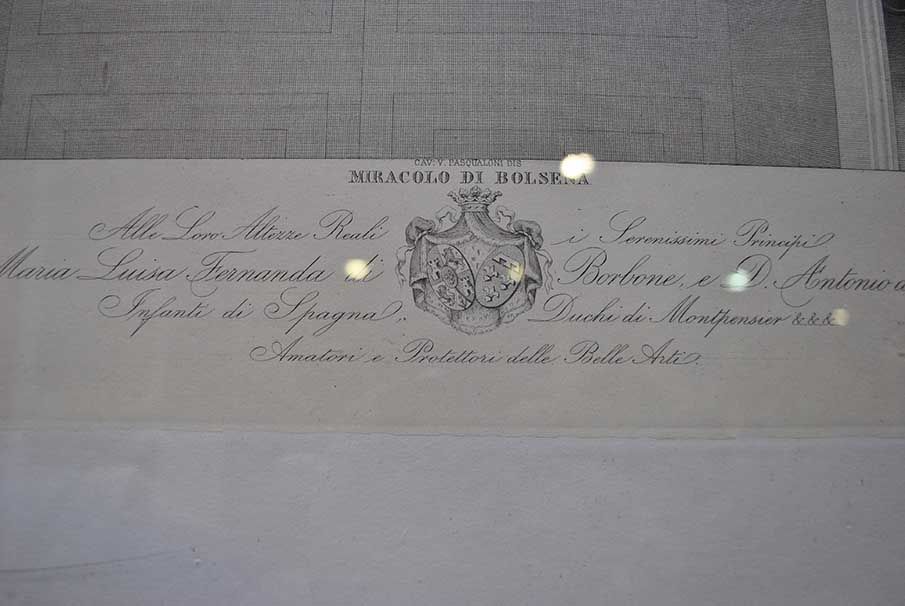 CAV: V. PASQUALONI DIS
MIRACOLO DI BOLSENA
Alle Loro Altezze Reali i Serenissimi Principi
Maria Luisa Fernanda di Borbone, e D. Antonio
Infanti di Spagna, Duchi di Montpensier &&&
Amatori e Protettori delle Belle Arti.